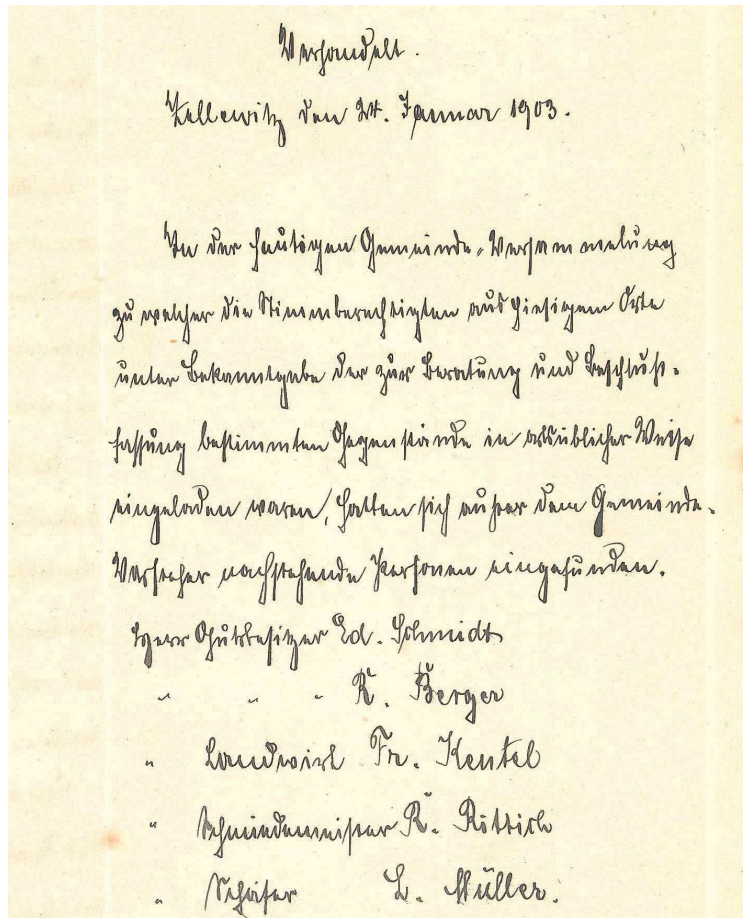 Verhandelt.
Zellewitz den 24. Januar 1903.
In der heutigen Gemeinde-Versammelung
zu welcher die Stimmberechtigten aus hiesigem Orte
unter Bekanntgabe der zur Beratung und Beschluß-
fassung bestimmten Gegenstände in ortsüblicher Weise
eingeladen waren, hatten sich außer dem Gemeinde-
Vorsteher nachstehende Personen eingefunden.
Herr Gutsbesitzer Ed. Schmidt
" " " R. Berger
" Landwirt Fr. Kentel
" Schmiedemeister R. Rottich
" Schäfer L. Müller.